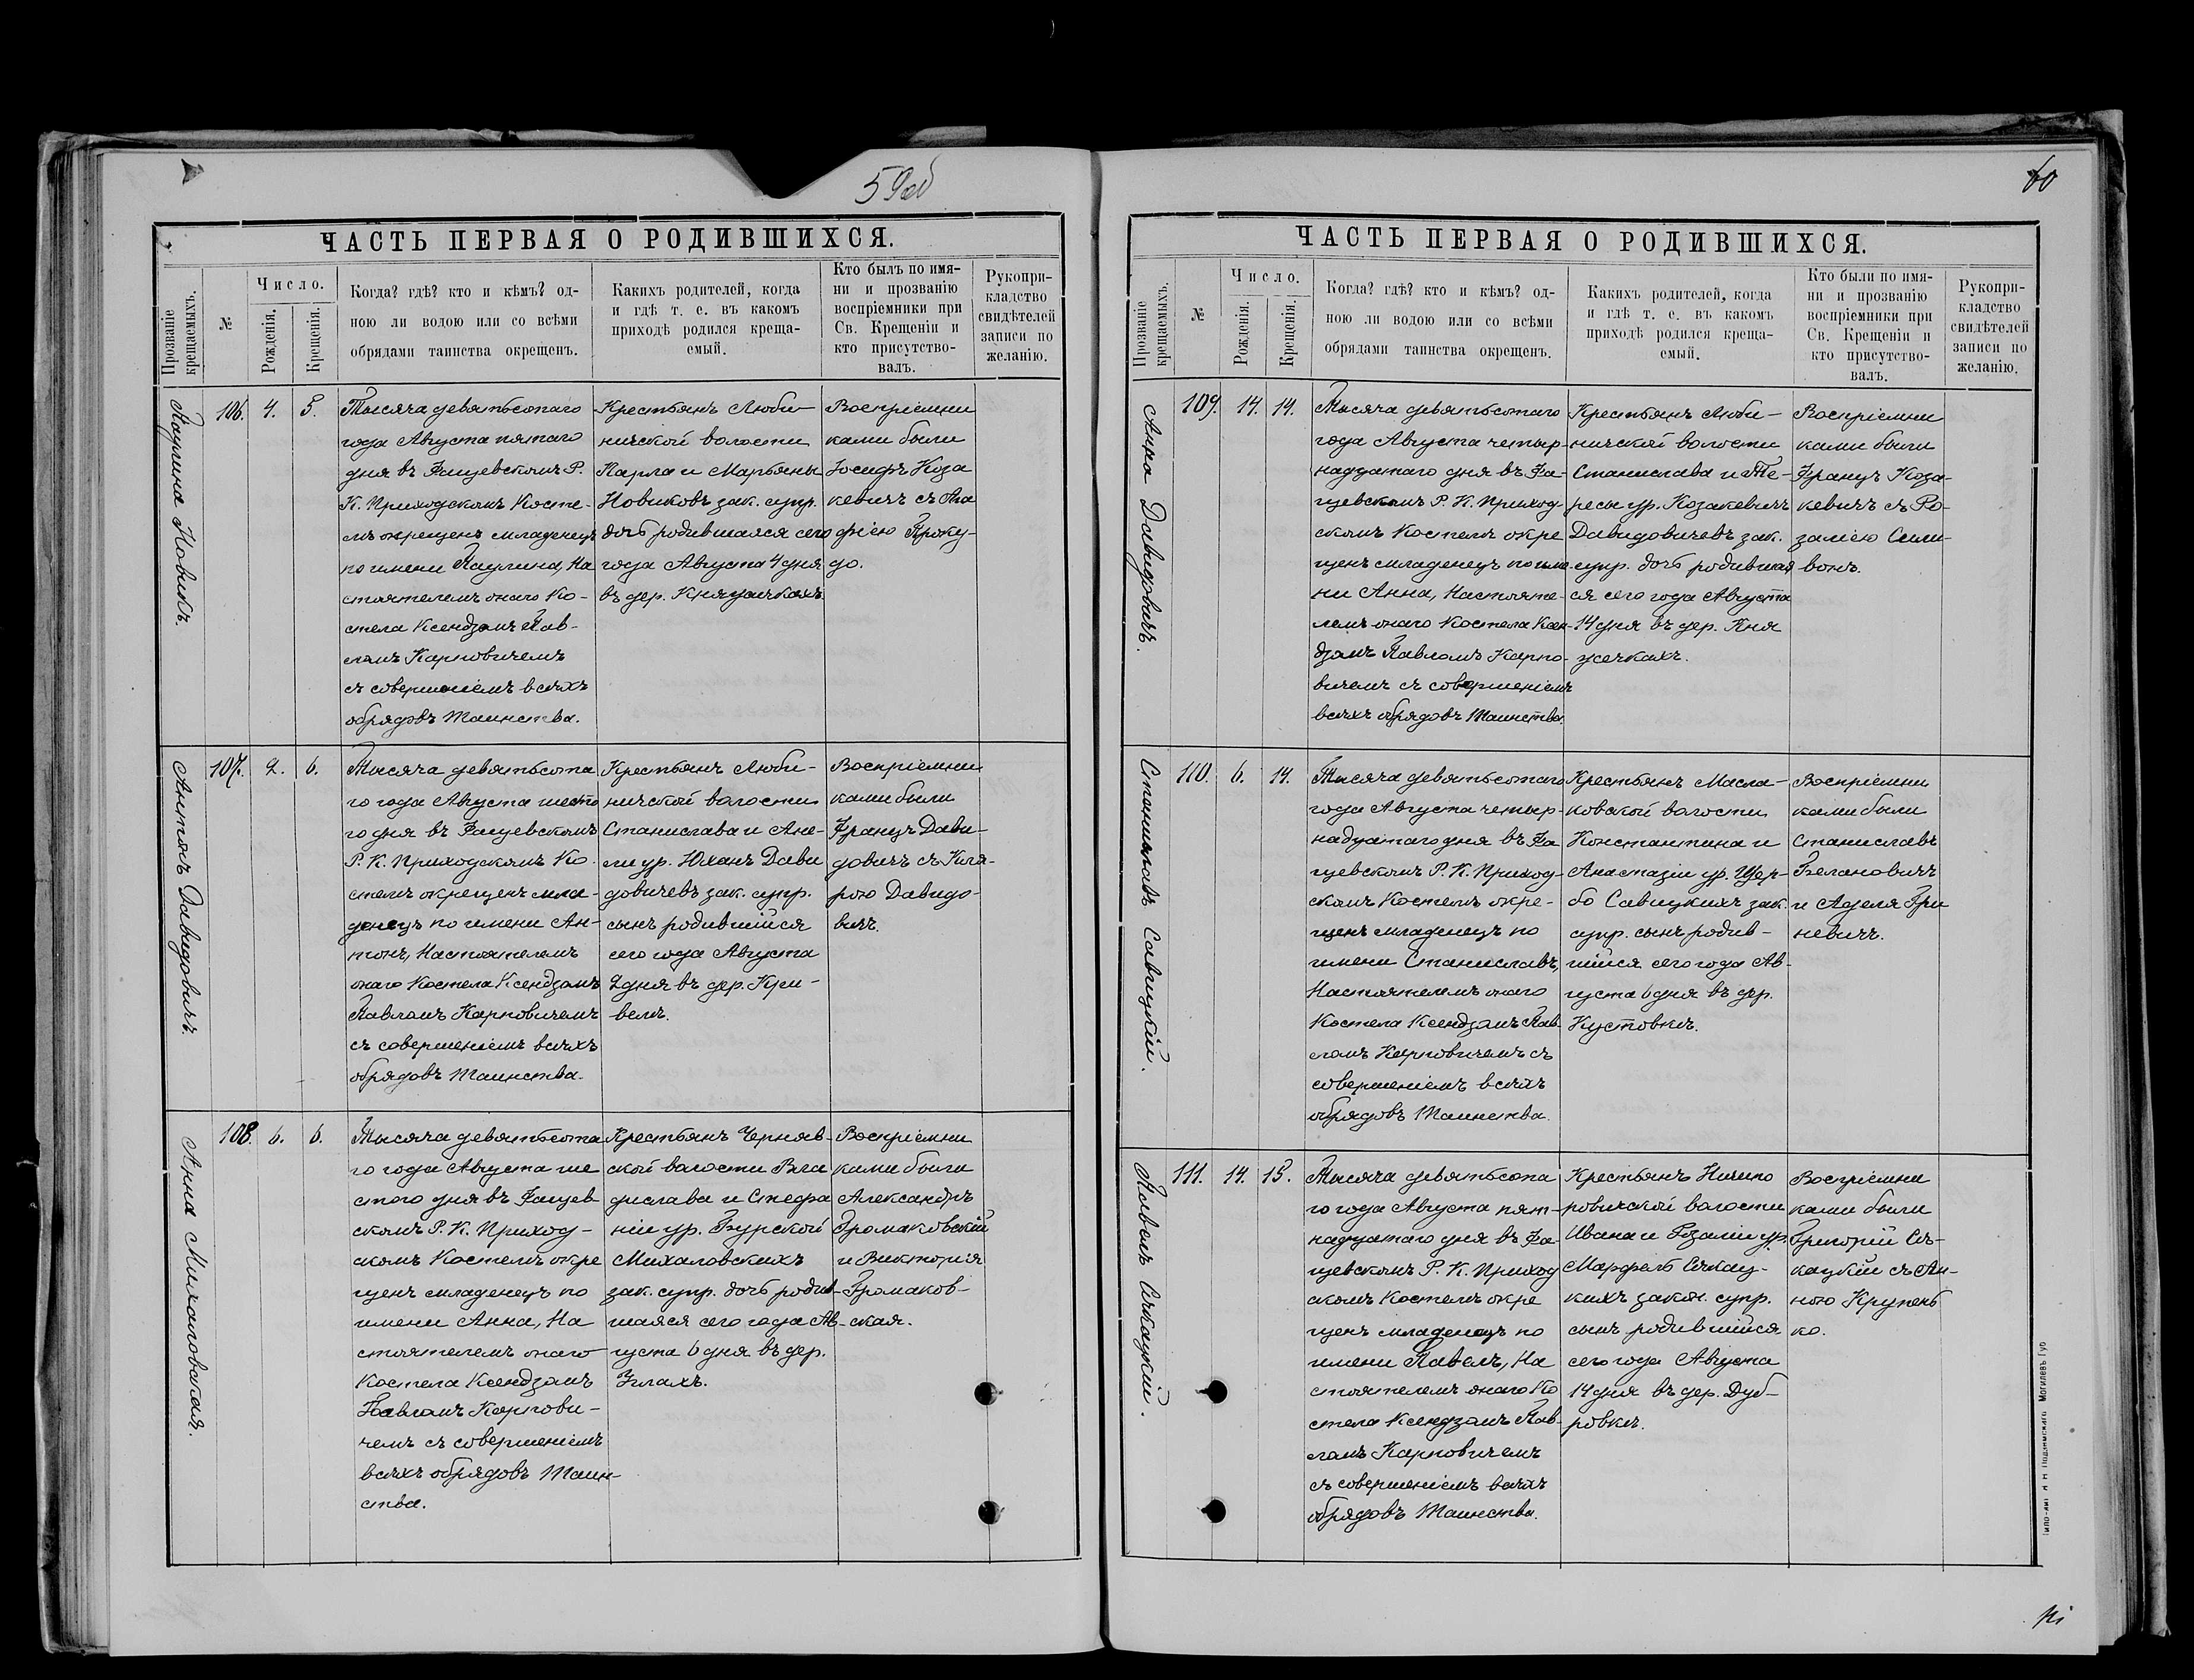 59об
ЧАСТЬ ПЕРВАЯ О РОДИВШИХСЯ.
Прозваніе
крещаемыхъ.
№
Число.
Рожденія.
Крещенія.
Когда? гдѣ? кто и кѣмъ? од-
ною ли водою или со всѣми
обрядами таинства окрещенъ.
Какихъ родителей, когда
и гдѣ т. е. въ какомъ
приходѣ родился креща-
емый.
Кто былъ по имя-
ни и прозванію
воспріемники при
Св. Крещеніи и
кто присутство-
валъ.
Рукопри-
кладство
свидѣтелей
записи по
желанію.
Паулина Новикъ.
106.
4.
5.
Тысяча девятьсотаго
года Августа пятаго
дня въ Фащевскомъ Р.
К. Приходскомъ Косте-
лѣ окрещенъ младенецъ
по имени Паулина, На
стоятелемъ онаго Ко-
стела Ксендзомъ Пав-
ломъ Карповичемъ
съ совершеніемъ всѣхъ
обрядовъ Таинства.
Крестьянъ Люби-
ничской волости
Карла и Марьяны
Новиковъ зак. супр.
дочь родившаяся сего
года Августа 4 дня
въ дер. Княжичкахъ.
Воспріемни
ками были
Іосифъ Коза
кевичъ съ Ага
фіею Проку-
до.
Антонъ Давидовичъ.
107.
2.
6.
Тысяча девятьсота
го года Августа шесто
го дня въ Фащевскомъ
Р. К. Приходскомъ Ко-
стелѣ окрещенъ мла-
денецъ по имени Ан-
тонъ, Настоятелемъ
онаго Костела Ксендзомъ
Павломъ Карповичемъ
съ совершеніемъ всѣхъ
обрядовъ Таинства.
Крестьянъ Люби-
ничской волости
Станислава и Ане-
ли ур. Юханъ Дави
довичевъ зак. супр.
сынъ родившійся
сего года Августа
2 дня въ дер. Кри-
велѣ.
Воспріемни
ками были
Францъ Дави-
довичъ съ Кля-
рою Давидо-
вичъ.
Анна Михаловская.
108.
6.
6.
Тысяча девятьсота
го года Августа ше
стого дня въ Фащев
скомъ Р. К. Приход-
скомъ Костелѣ окре
щенъ младенецъ по
имени Анна, На
стоятелемъ онаго
Костела Ксендзомъ
Павломъ Карпови-
чемъ съ совершеніемъ
всѣхъ обрядовъ Таин-
ства.
Крестьянъ Черняв-
ской волости Вла
дислава и Стефа
ніи ур. Бурской
Михаловскихъ
зак. супр. дочь родив-
шаяся сего года Ав-
густа 6 дня въ дер.
Углахъ.
Воспріемни
ками были
Александръ
Громаковскій
и Викторія
Громаков-
ская.
60
ЧАСТЬ ПЕРВАЯ О РОДИВШИХСЯ.
Прозваніе
крещаемыхъ.
№
Число.
Рожденія.
Крещенія.
Когда? гдѣ? кто и кѣмъ? од-
ною ли водою или со всѣми
обрядами таинства окрещенъ.
Какихъ родителей, когда
и гдѣ т. е. въ какомъ
приходѣ родился креща-
емый.
Кто были по имя-
ни и прозванію
воспріемники при
Св. Крещеніи и
кто присутство-
валъ.
Рукопри-
кладство
свидѣтелей
записи по
желанію.
Анна Давидовичъ.
109.
14.
14.
Тысяча девятьсотаго
года Августа четыр-
надцатаго дня въ Фа-
щевскомъ Р. К. Приход-
скомъ Костелѣ окре
щенъ младенецъ по име
ни Анна, Настояте-
лемъ онаго Костела Ксен-
дзомъ Павломъ Карпо-
вичемъ съ совершеніемъ
всѣхъ обрядовъ Таинства.
Крестьянъ Люби-
ничской волости
Станислава и Те-
ресы ур. Козакевичъ
Давидовичевъ зак.
супр. дочь родившая
ся сего года Августа
14 дня въ дер. Кня
жичкахъ.
Воспріемни
ками были
Францъ Коза-
кевичъ съ Ро-
заліею Сили-
вонъ.
Станиславъ Савицкій.
110.
6.
14.
Тысяча девятьсотаго
года Августа четыр-
надцатаго дня въ Фа
щевскомъ Р. К. Приход-
скомъ Костелѣ окре-
щенъ младенецъ по
имени Станиславъ,
Настоятелемъ онаго
Костела Ксендзомъ Пав-
ломъ Карповичемъ съ
совершеніемъ всѣхъ
обрядовъ Таинства.
Крестьянъ Масла-
ковской волости
Константина и
Анастазіи ур. Щер-
бо Савицкихъ зак.
супр. сынъ родив-
шійся сего года Ав-
густа 6 дня въ дер.
Кустовкѣ.
Воспріемни
ками были
Станиславъ
Белановичъ
и Аделя Гри
невичъ.
Павелъ Сѣкацкій.
111.
14.
15.
Тысяча девятьсота
го года Августа пят-
надцатаго дня въ Фа-
щевскомъ Р. К. Приход
скомъ Костелѣ окре
щенъ младенецъ по
имени Павелъ, На
стоятелемъ онаго Ко
стела Ксендзомъ Пав-
ломъ Карповичемъ
съ совершеніемъ всѣхъ
обрядовъ Таинства.
Крестьянъ Ничипо
ровичской волости
Ивана и Розаліи ур.
Марфель Сѣкац-
кихъ закон. супр.
сынъ родившійся
сего года Августа
14 дня въ дер. Дуб-
ровкѣ.
Воспріемни
ками были
Григорій Сѣ-
кацкій съ Ан-
ною Крупень
ко.
Могилевъ Губ